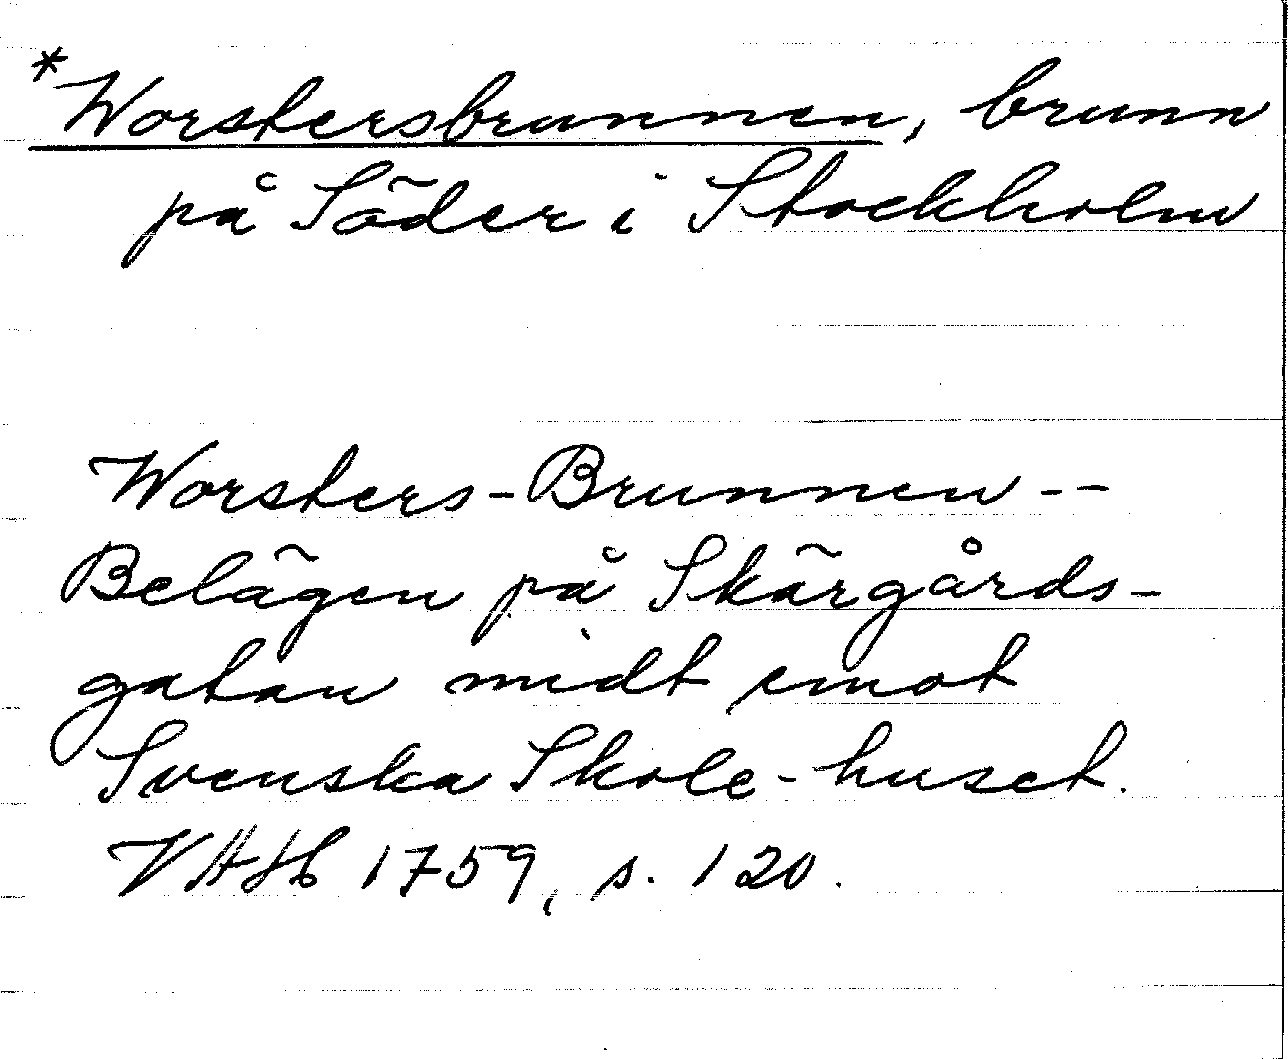 *Worstersbrunnen, brunn
på Söder i Stockholm
Worsters-Brunnen --
Belägen på Skärgårds-
gatan midt emot
Svenska Skole-huset.
VAH 1759, s. 120.